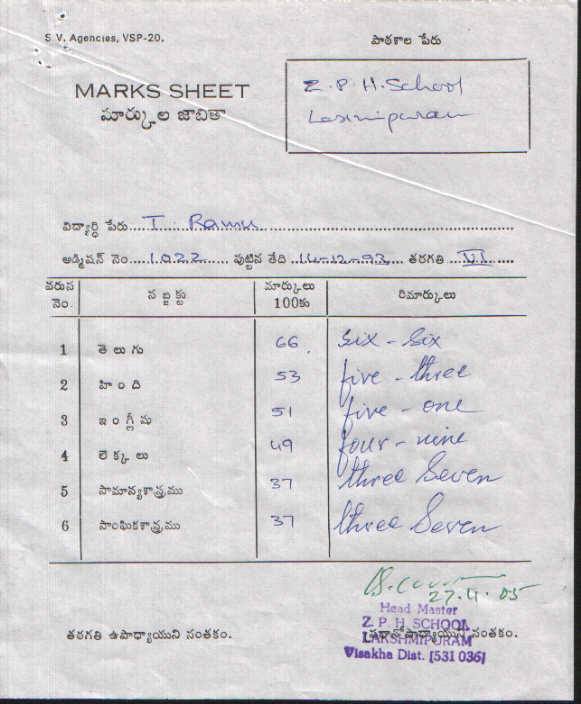 S.V. Agencies, VSP-20.
పాఠశాల పేరు
MARKS SHEET
మార్కుల జాబితా
Z. P. H. School
Laximipuram
విద్యార్థి పేరు....T. Ramu
అడ్మిషన్ నెం....1022...... పుట్టిన తేది ..14-12-93.. తరగతి ..VI....
వరుస నెం. సబ్జెక్టు మార్కులు 100కు రిమార్కులు
1 తెలుగు 66 six - six
2 హింది 53 five - three
3 ఇంగ్లీషు 51 five - one
4 లెక్కలు 49 four - nine
5 సామాన్యశాస్త్రము 37 three Seven
6 సాంఘికశాస్త్రము 37 three Seven
27.4.05
Head Master
Z. P. H. SCHOOL
LAKSHMIPURAM
Visakha Dist. [531 036]
తరగతి ఉపాధ్యాయుని సంతకం. ప్రధానోపాధ్యాయుని సంతకం.